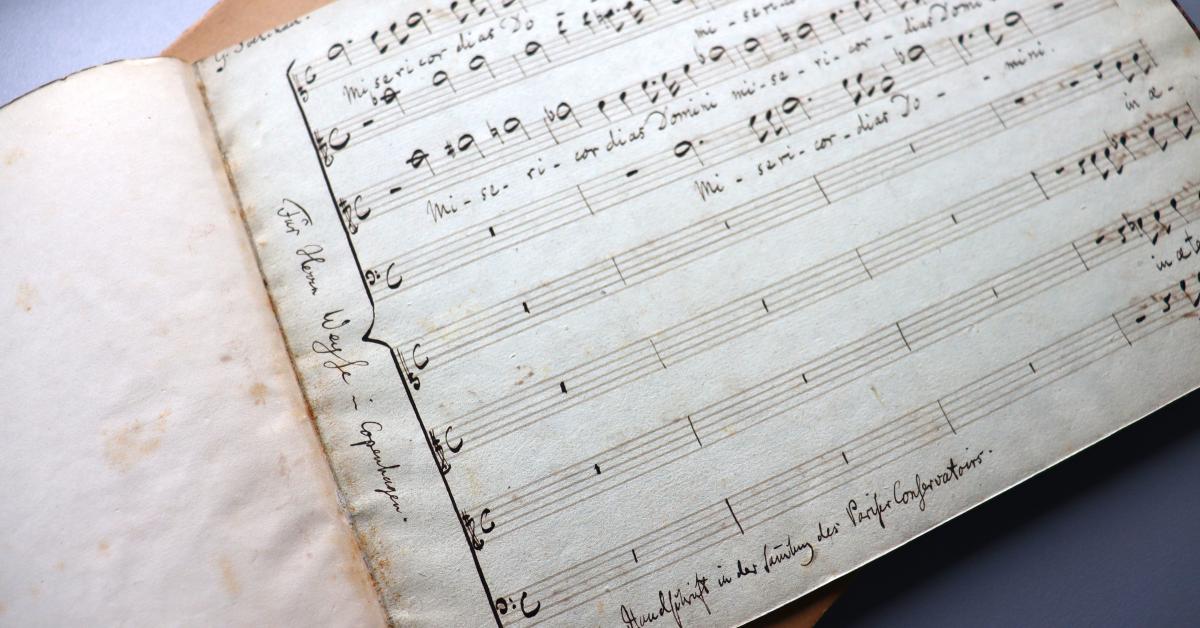 Misericordias Do
mi - seri
Mi - se - ri - cordias Domini mi - se - ri - cor - dias Domi
Mi - seri - cor - dias Do - - mini.
in æ-
in æte
Für Herrn Weyse in Copenhagen.
Handschrift in der Samlung des Pariser Conservatoirs.